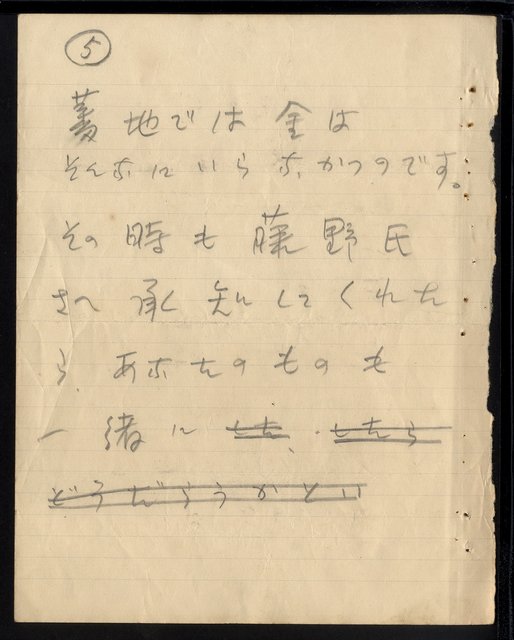 ⑤
蕃地では金は
そんなにいらなかつのです。
その時も藤野氏
さへ承知してくれた
ら、あなたのものも
一緒に した、したら
どうだらうかとい